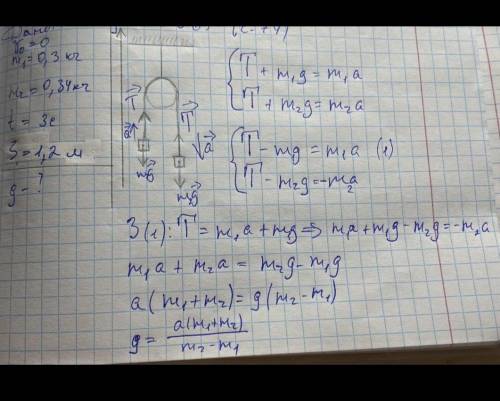 (с. 74)
v₀ = 0
m₁ = 0,3 кг
m₂ = 0,34 кг
t = 3с
S = 1,2 м
g - ?
T⃗
T⃗
a⃗
a⃗
mg⃗
m₂g⃗
T⃗ + m₁g⃗ = m₁a⃗
T⃗ + m₂g⃗ = m₂a⃗
T - mg = m₁a (1)
T - m₂g = -m₂a
З (1): T = m₁a + mg => m₁a + m₁g - m₂g = -m₂a
m₁a + m₂a = m₂g - m₁g
a (m₁ + m₂) = g (m₂ - m₁)
g = a(m₁+m₂) / m₂ - m₁